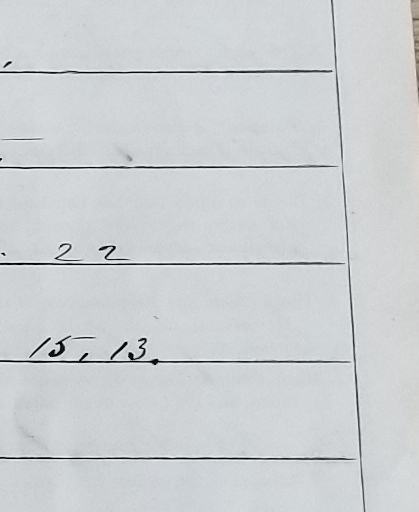 22
15, 13.